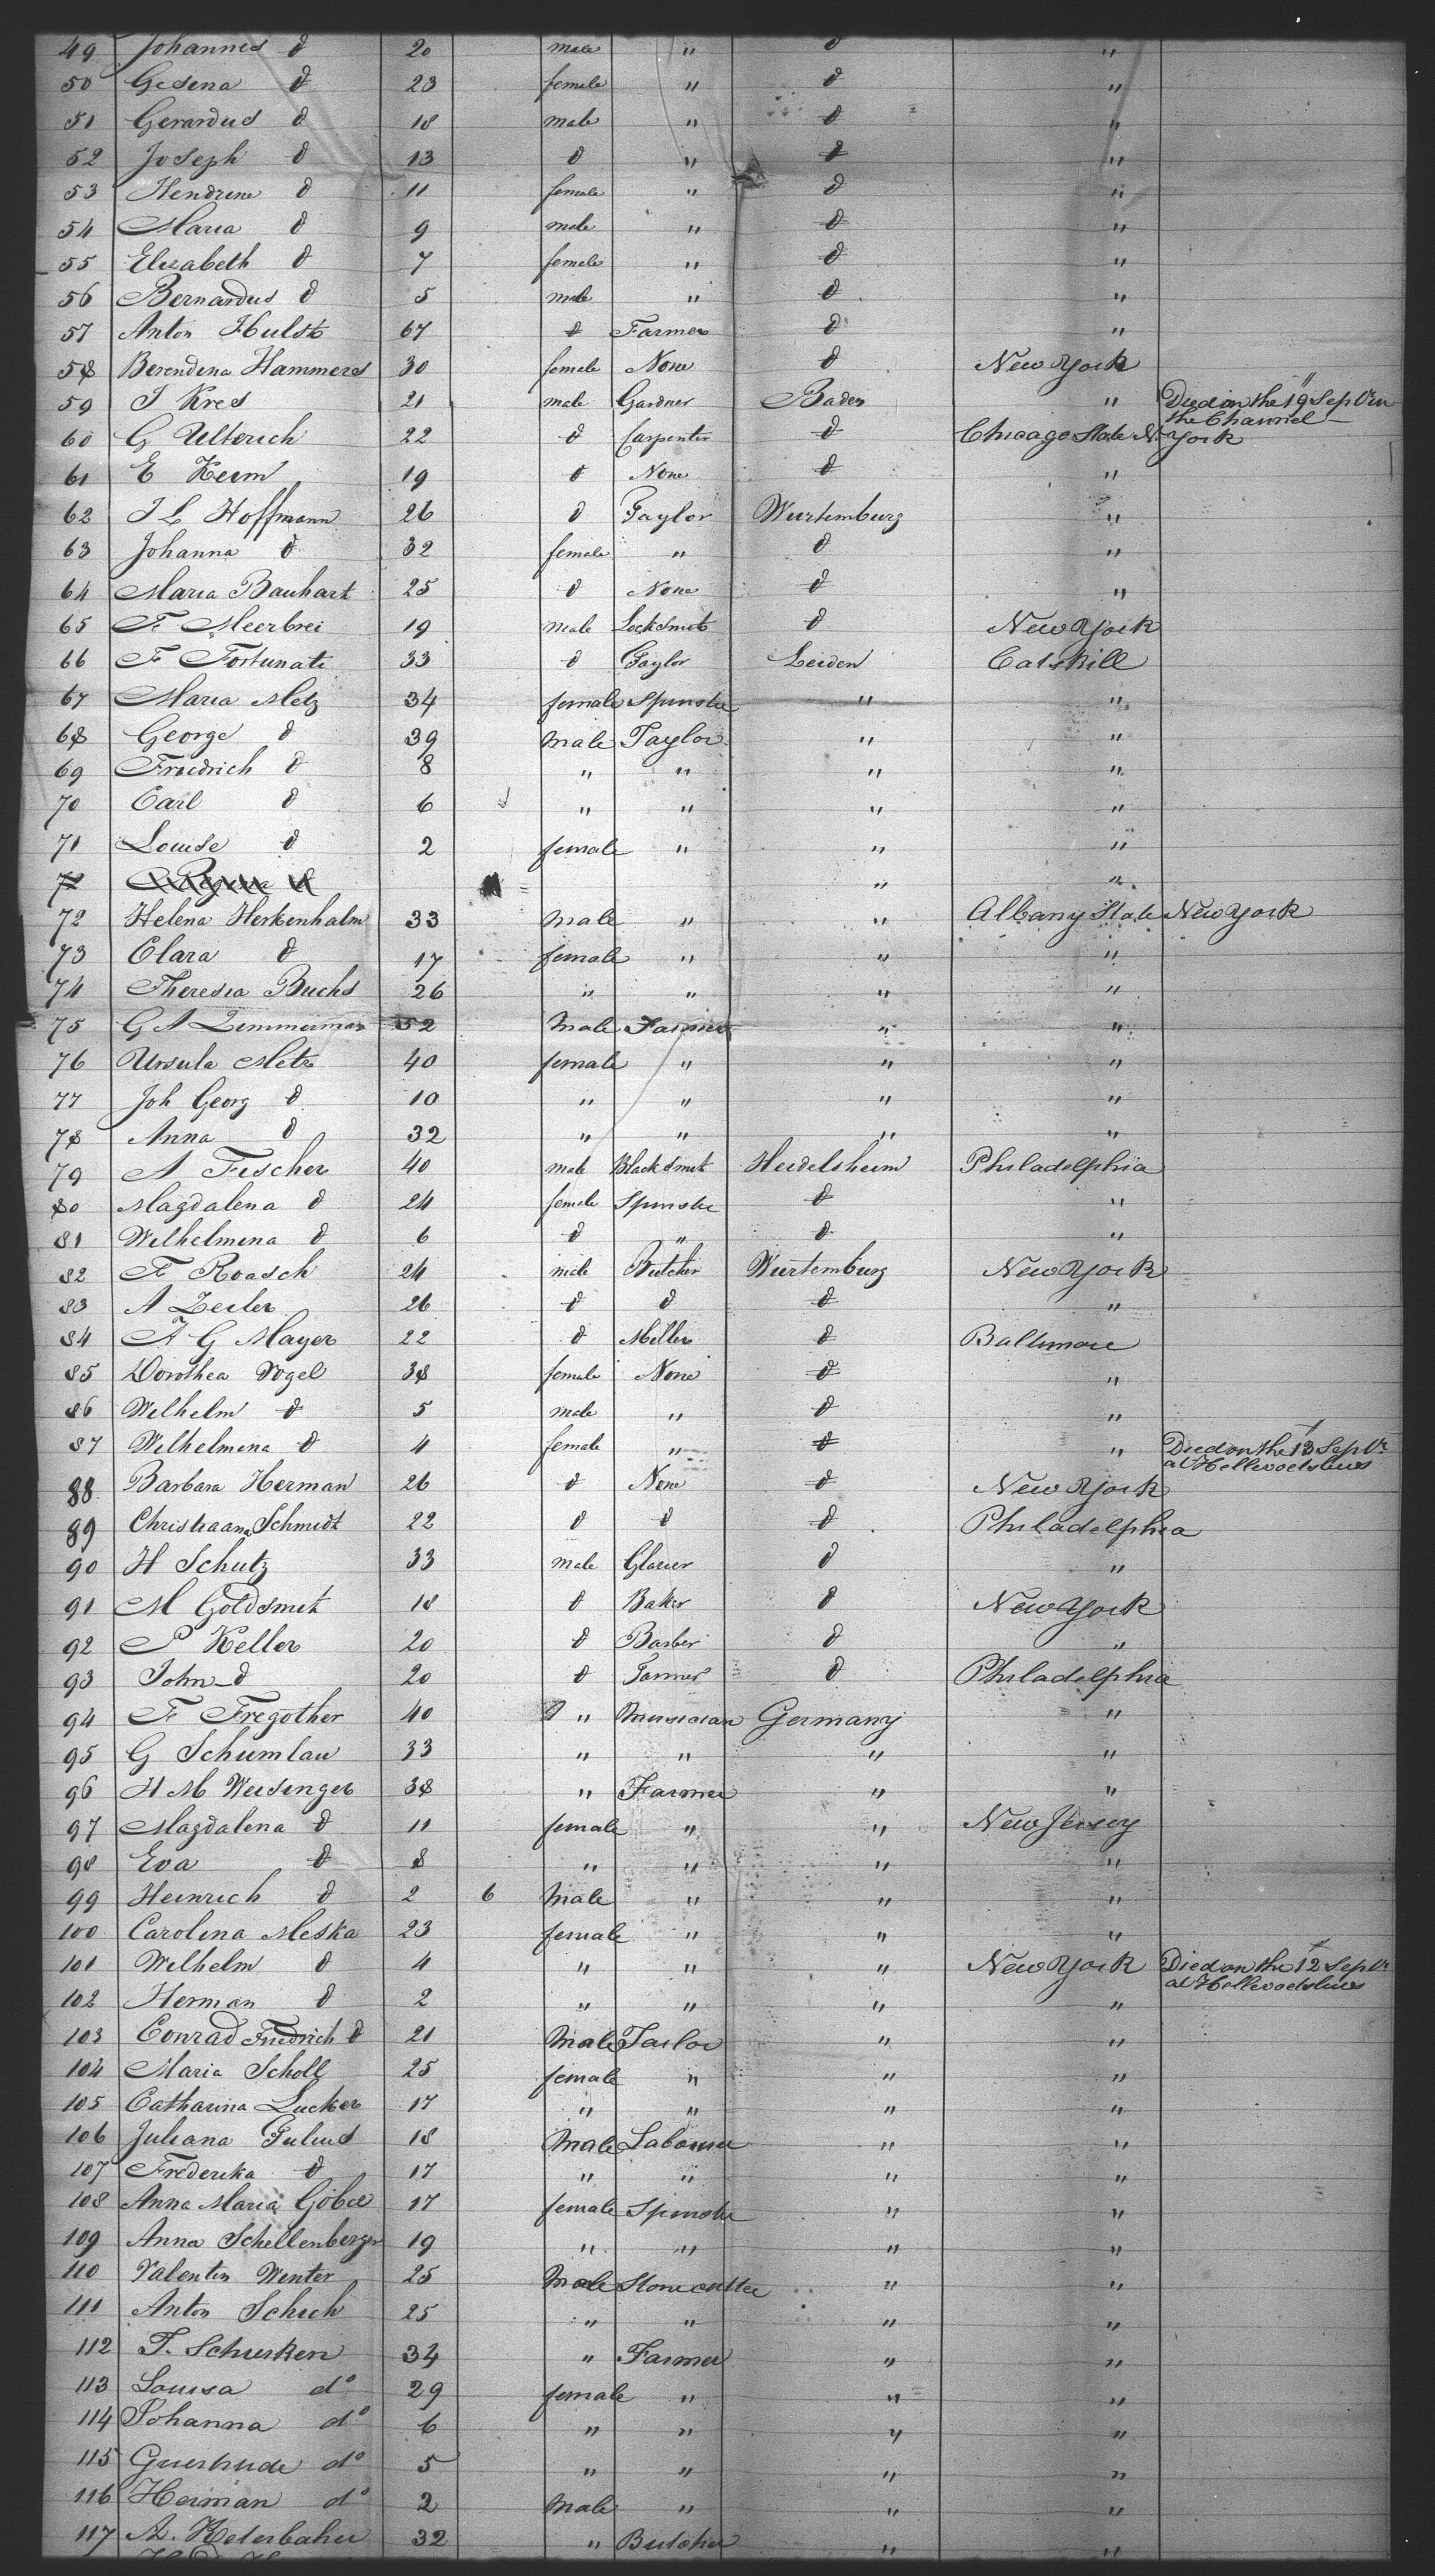 49 Johannes d 20 male " d "
50 Gesena d 23 female " d "
51 Gerardus d 18 male " d "
52 Joseph d 13 d " d "
53 Hendrene d 11 female " d "
54 Maria d 9 male " d "
55 Elizabeth d 7 female " d "
56 Bernardus d 5 male " d "
57 Anton Hulst 67 d Farmer d "
58 Berendena Hammers 30 female None d New York "
59 J Kres 21 male Gardner Baden " Died on the 19 Sepbr in
the Channel
60 G Ulterich 22 d Carpenter d Chicago State N. York
61 E Keim 19 d None d "
62 J L Hoffmann 26 d Taylor Wurtemburg "
63 Johanna d 32 female " d "
64 Maria Bauhart 25 d None d "
65 F Meerbrei 19 male Locksmit d New York
66 F Fortunati 33 d Taylor Leiden Catskill
67 Maria Metz 34 female Spinster " "
68 George d 39 Male Taylor " "
69 Friedrich d 8 " " " "
70 Carl d 6 " " " "
71 Louise d 2 female " " "
" "
72 Helena Herkenhalm 33 Male " " Albany State New York
73 Clara d 17 female " " "
74 Theresia Buchs 26 " " " "
75 G A Zimmerman 52 Male Farmer " "
76 Ursula Metz 40 female " " "
77 Joh Georg d 10 " " " "
78 Anna d 32 " " " "
79 A Fischer 40 male Blacksmit Heidelsheim Philadelphia
80 Magdalena d 24 female Spinster d "
81 Wilhelmena d 6 d " d "
82 F Roasch 24 male Butcher Wurtemburg New York
83 A Zeiler 26 d d d "
84 F G Mayer 22 d Miller d Baltimore
85 Dorothea Vogel 38 female None d "
86 Wilhelm d 5 male " d "
87 Wilhelmena d 4 female " d " Died on the 13 Sepbr
at Hellevoetsluis
88 Barbara Herman 26 d None d New York
89 Christiaana Schmidt 22 d d d Philadelphia
90 H Schutz 33 male Glazier d "
91 M Goldsmit 18 d Baker d New York
92 P Keller 20 d Barber d "
93 John d 20 d Tanner d Philadelphia
94 F Fregother 40 " Musician Germany "
95 G Schumlau 33 " " " "
96 H M Weisinger 38 " Farmer " "
97 Magdalena d 11 female " " New Jersey
98 Eva d 8 " " " "
99 Heinrich d 2 6 Male " " "
100 Carolina Meska 23 female " " "
101 Wilhelm d 4 " " " New York Died on the 12 Sepbr
at Hellevoetsluis
102 Herman d 2 " " " "
103 Conrad Friedrich d 21 Male Tailor " "
104 Maria Scholl 25 female " " "
105 Catharina Lucker 17 " " " "
106 Juliana Julius 18 Male Labourer " "
107 Frederika d 17 " " " "
108 Anna Maria Göbel 17 female Spinster " "
109 Anna Schellenberger 19 " " " "
110 Valentin Winter 25 Male Stone cutter " "
111 Anton Schich 25 " " " "
112 F. Schurken 34 " Farmer " "
113 Louisa do 29 female " " "
114 Johanna do 6 " " " "
115 Guertrude do 5 " " " "
116 Herman do 2 Male " " "
117 A. Kederbahn 32 " Butcher " "